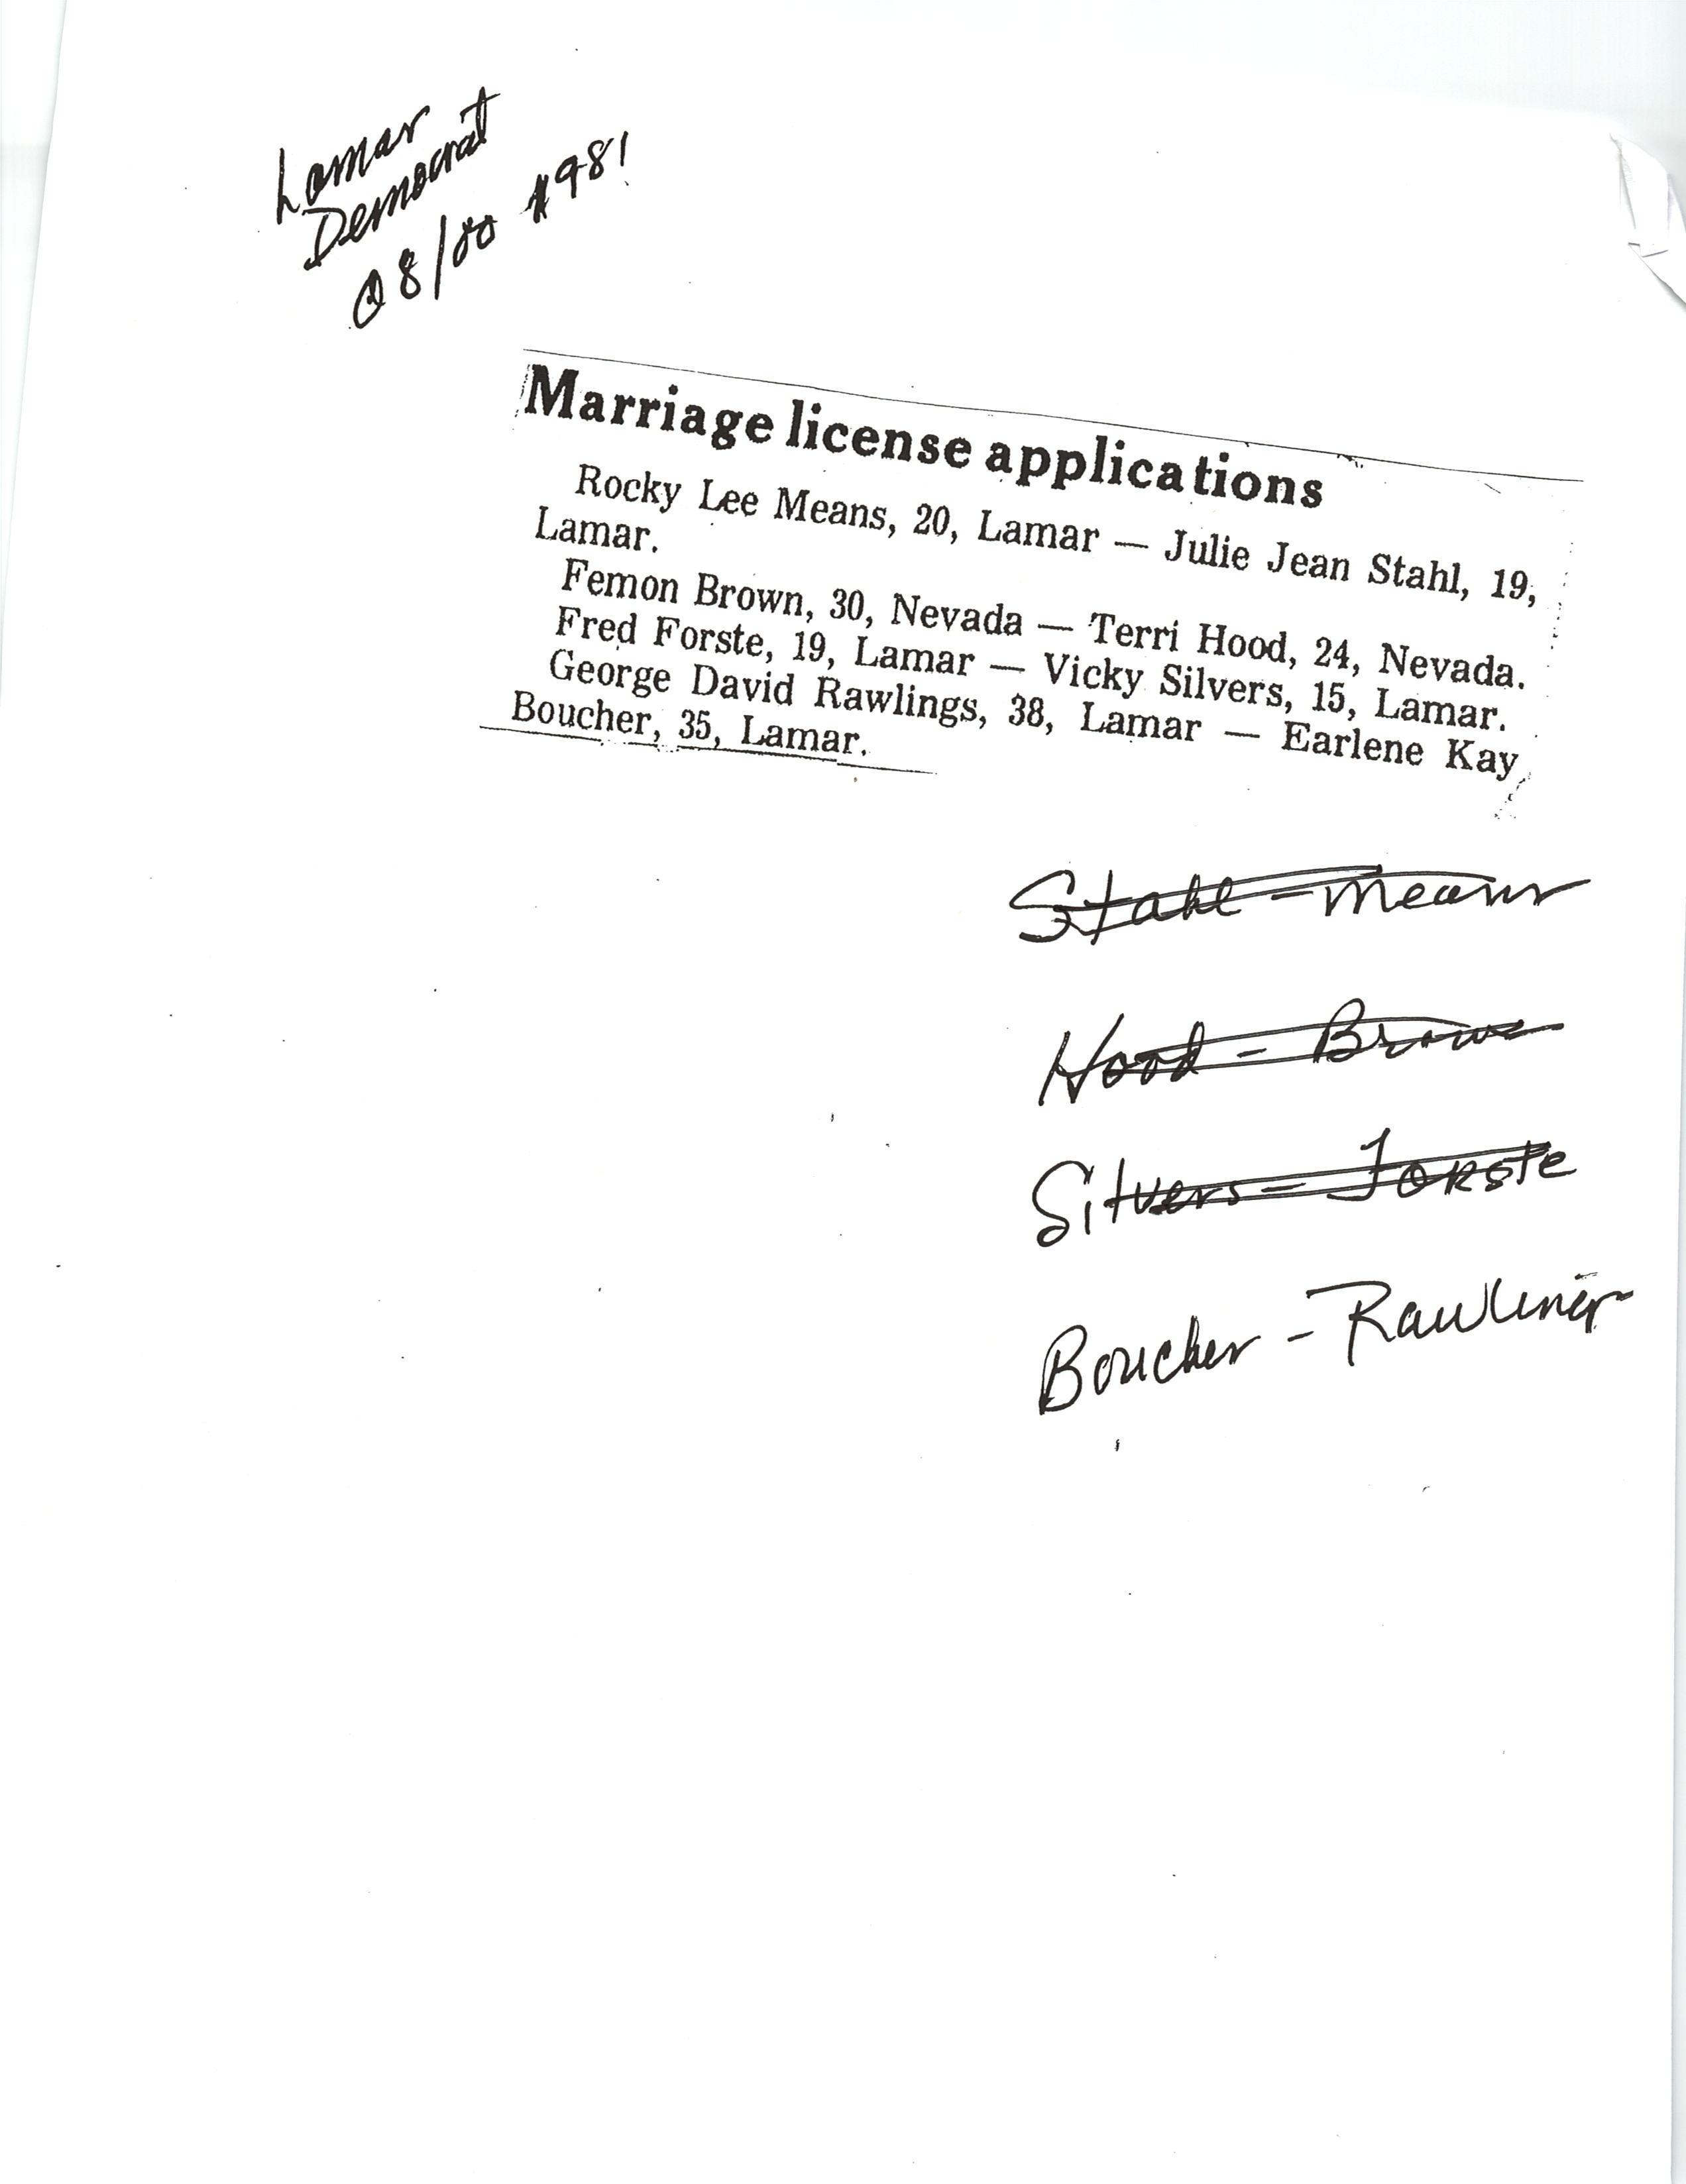 Lamar
Democrat
08/00 1981
Marriage license applications
Rocky Lee Means, 20, Lamar — Julie Jean Stahl, 19,
Lamar.
Femon Brown, 30, Nevada — Terri Hood, 24, Nevada.
Fred Forste, 19, Lamar — Vicky Silvers, 15, Lamar.
George David Rawlings, 38, Lamar — Earlene Kay
Boucher, 35, Lamar.
Stahl - Means
Hood - Brown
Silvers - Forste
Boucher - Rawlings